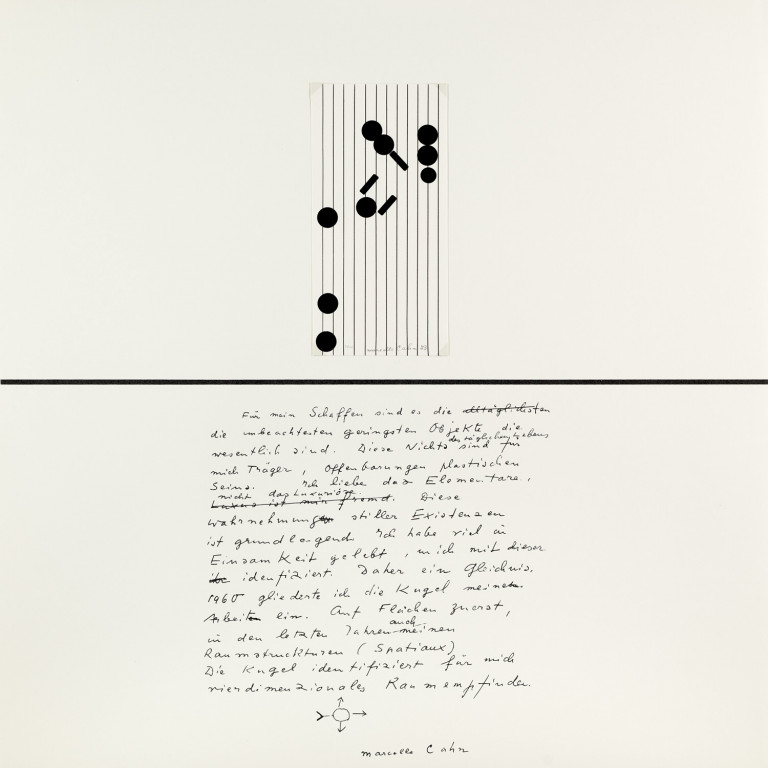 marcelle Cahn
Für mein Schaffen sind es die alltäglichsten
die unbeachtesten geringsten Objekte die
des täglichen Lebens
wesentlich sind. Diese Nichts sind für
mich Träger, Offenbarungen plastischen
Seins. Ich liebe das Elementare,
nicht das Luxuriöse.
Luxus ist mir fremd. Diese
Wahrnehmung stiller Existenzen
ist grundlegend. Ich habe viel in
Einsamkeit gelebt, mich mit dieser
idenfiziert. Daher ein Gleichnis.
1960 gliederte ich die Kugel meinen
Arbeiten ein. Auf Flächen zuerst,
auch
in den letzten Jahren meinen
Raumstruckturen (Spatiaux)
Die Kugel identifiziert für mich
vierdimenzionales Raumempfinden.
marcelle Cahn